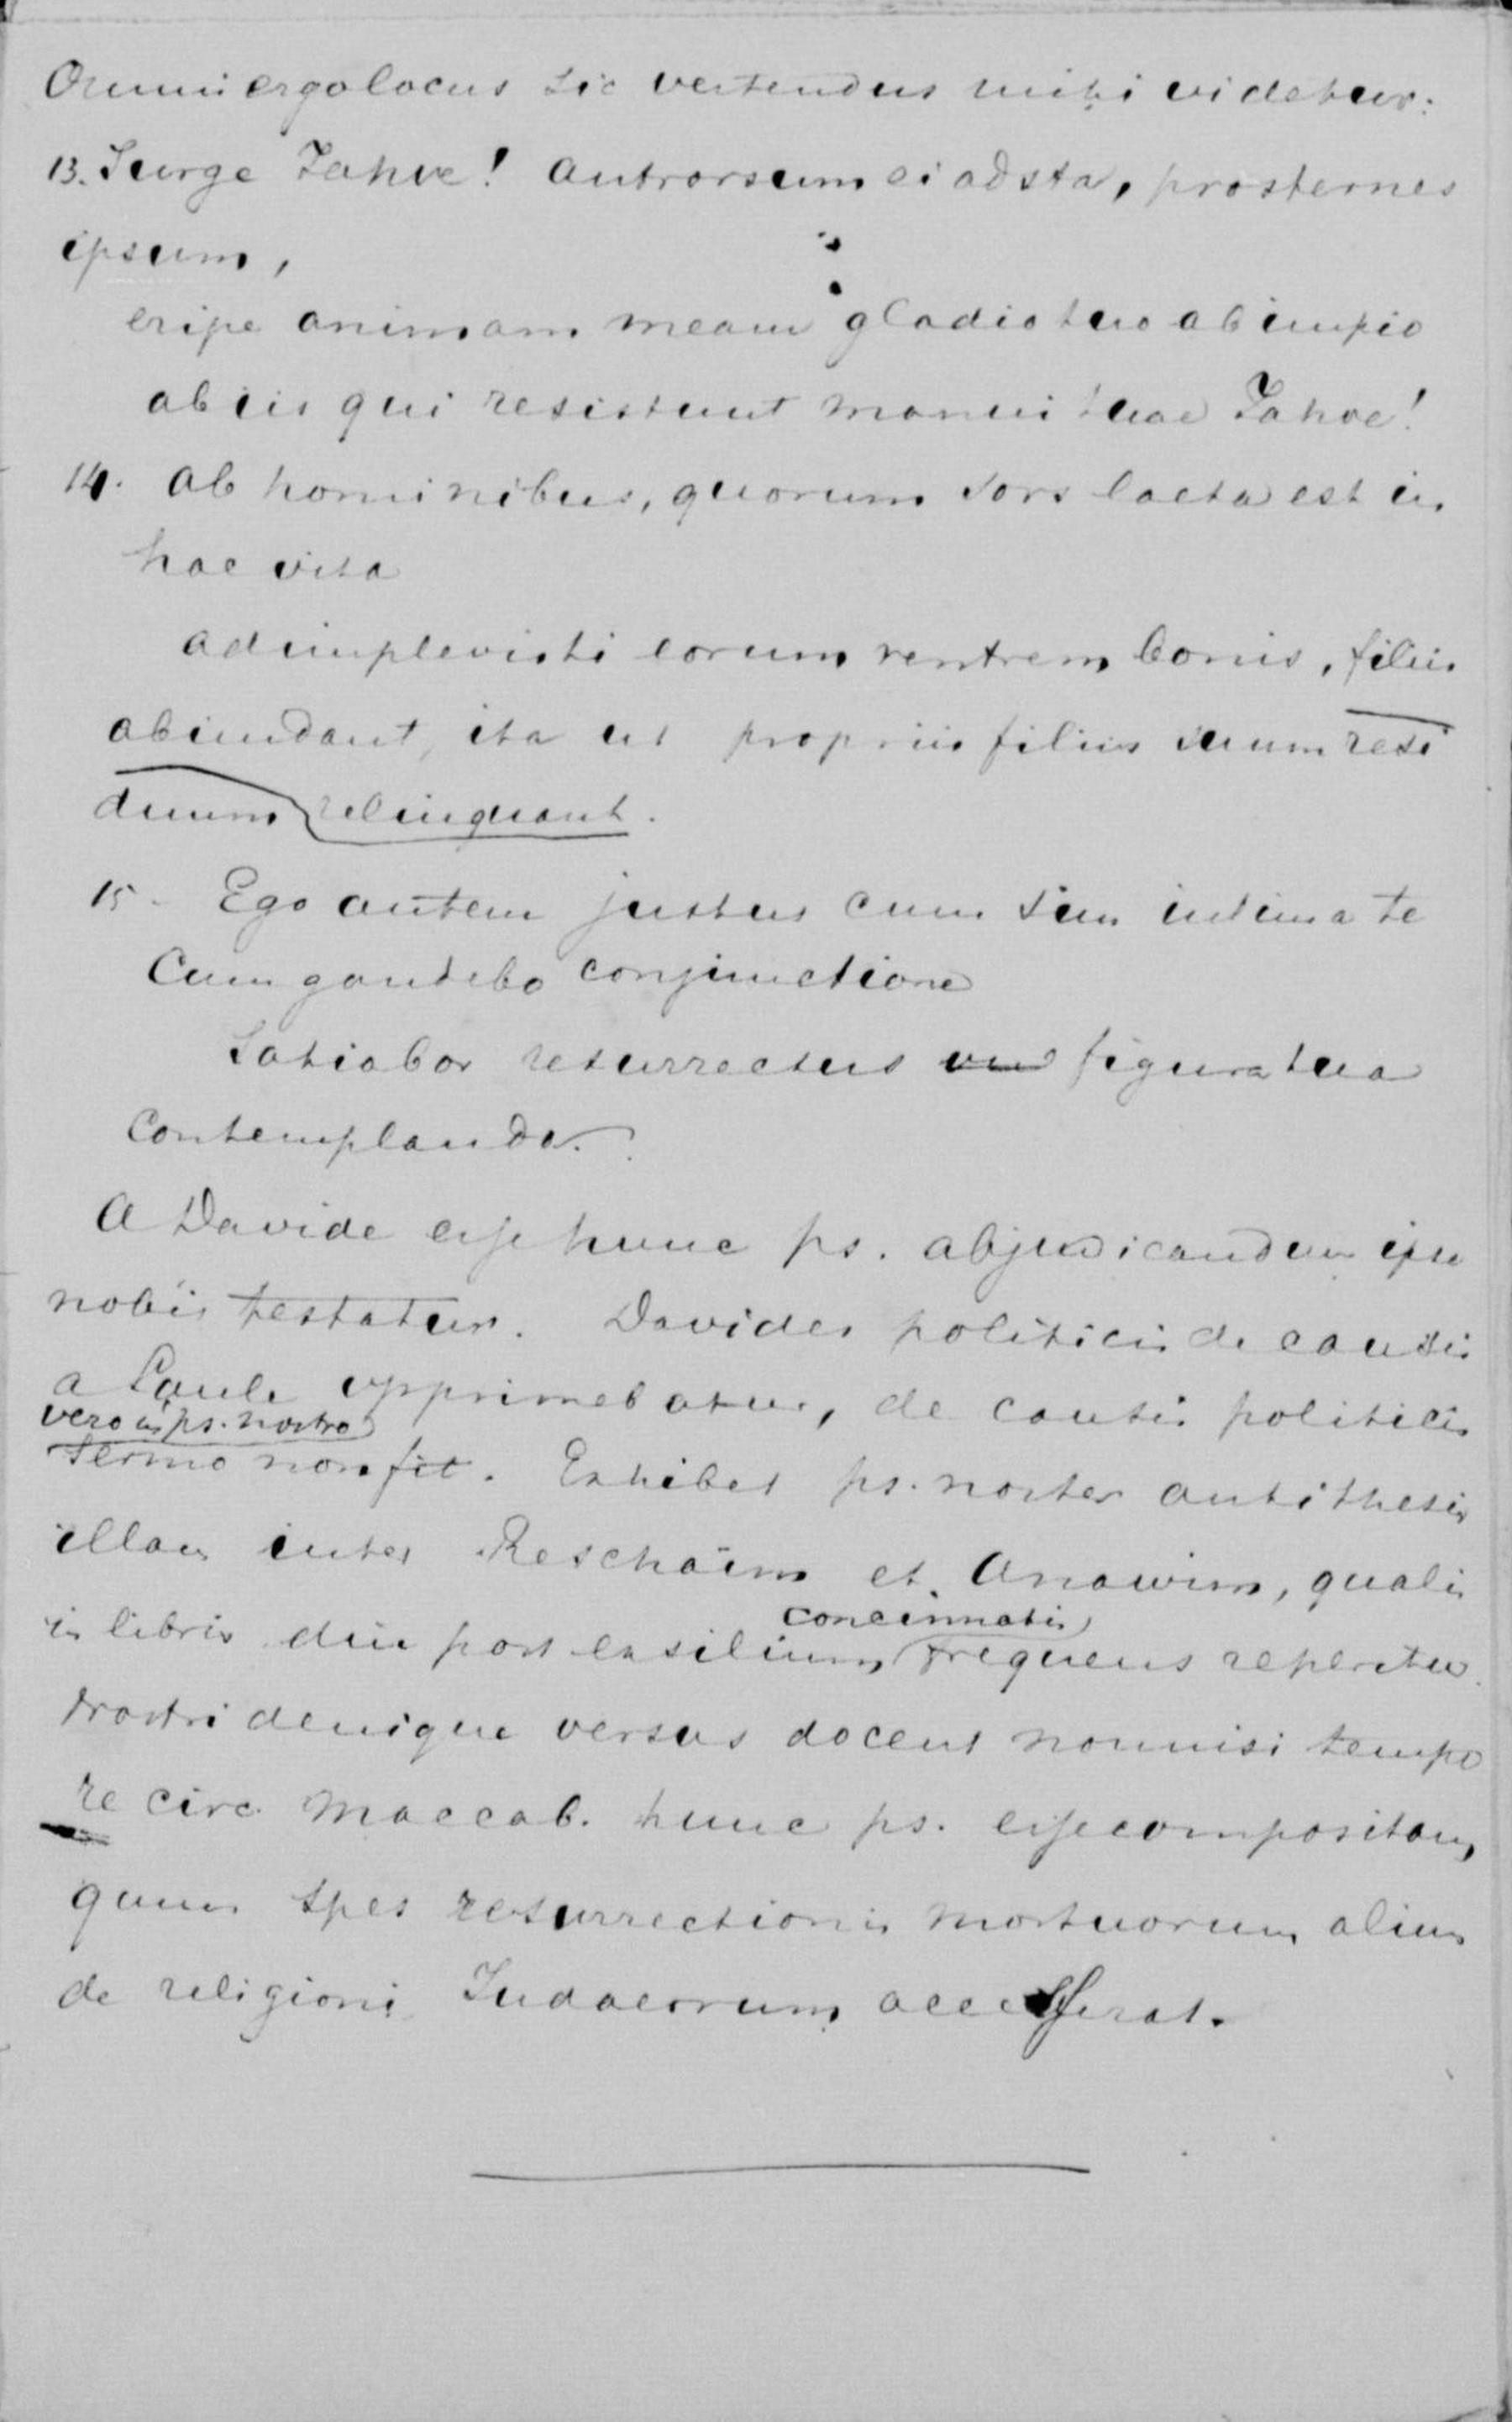 Omni ergo locus sic vertendus mihi videtur:
13. Surge Jahve! antrorsum ei adsta, prosternes
ipsum,
eripe animam meam gladio tuo ab impio
ab iis qui resistunt manui tuae Jahve!
14. ab hominibus, quorum sors laeta est in
hac vita
adimplevisti eorum ventrem bonis, filiis
abundant, ita ut propriis filiis suum resi
duum relinquant.
15. Ego autem justus cum sim intima te
cum gaudebo conjunctione
satiabor resurrectus figura tua
contemplanda.
A Davide esse hunc ps. abjudicandum ipse
nobis testatur. Davides politicis de causis
a Saule opprimebatur, de causis politicis
vero in ps. nostro
sermo non fit. Exhibet ps. noster antithesin
illam inter Reschaïm et Anawim, qualis
concinnatis
in libris diu post exsilium frequens reperitur.
Nostri denique versus docent nonnisi tempo
re circ. Maccab. hunc ps. esse compositum,
quum spes resurrectionis mortuorum aliun
de religioni Judaeorum accesserat.